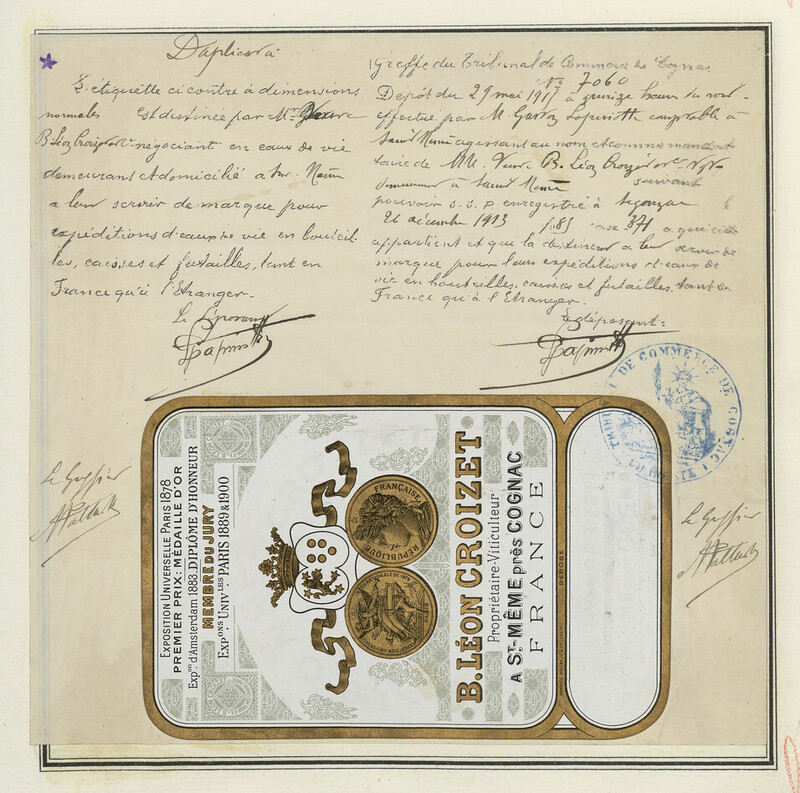 Duplicata
L'étiquette ci contre à dimensions
normales est destinée par Mme Veuve
B. Léon Croizet & Cie négociant en eaux de vie
demeurant et domicilié à St. Même
a leur servir de marque pour
expéditions d'eaux de vie en bouteil-
les, caisses et futailles, tant en
France qu'à l'Etranger.
Le Déposant
Greffe du Tribunal de Commerce de Cognac
No 7060
Dépôt du 29 mai 1913 à quinze heures
effectué par M. Gaston comptable à
Saint Même agissant au nom et comme mandat
taire de MM. Veuve B. Léon Croizet
demeurant à Saint Même suivant
pouvoir s.s.p enregistré à Segonzac le
26 décembre 1913 fo 85 case 371 a qui elle
appartient et qui la destinent a leur servir de
marque pour leurs expéditions d'eaux de
vie en bouteilles, caisses et futailles, tant en
France qu'à l'Etranger.
Le déposant
TRIBUNAL DE COMMERCE DE COGNAC
Le Greffier
Le Greffier
EXPOSITION UNIVERSELLE PARIS 1878
PREMIER PRIX: MÉDAILLE D'OR
Expon d'Amsterdam 1883 DIPLÔME D'HONNEUR
MEMBRE DU JURY
EXPONS UNIVLLES PARIS 1889 & 1900
RÉPUBLIQUE FRANÇAISE
B. LÉON CROIZET
Propriétaire-Viticulteur
A ST-MÊME près COGNAC
FRANCE
DÉPOSÉ